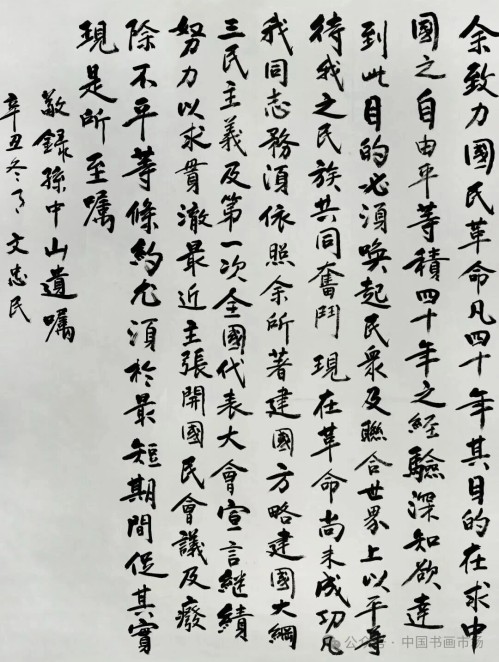 余致力國民革命凡四十年其目的在求中
國之自由平等積四十年之經驗深知欲達
到此目的必須喚起民衆及聯合世界上以平等
待我之民族共同奮鬥現在革命尚未成功凡
我同志務須依照余所著建國方略建國大綱
三民主義及第一次全國代表大會宣言繼續
努力以求貫澈最近主張開國民會議及廢
除不平等條約尤須於最短期間促其實
現是所至囑
敬錄孫中山遺囑
辛丑冬月 文忠民
公众号·中国书画市场